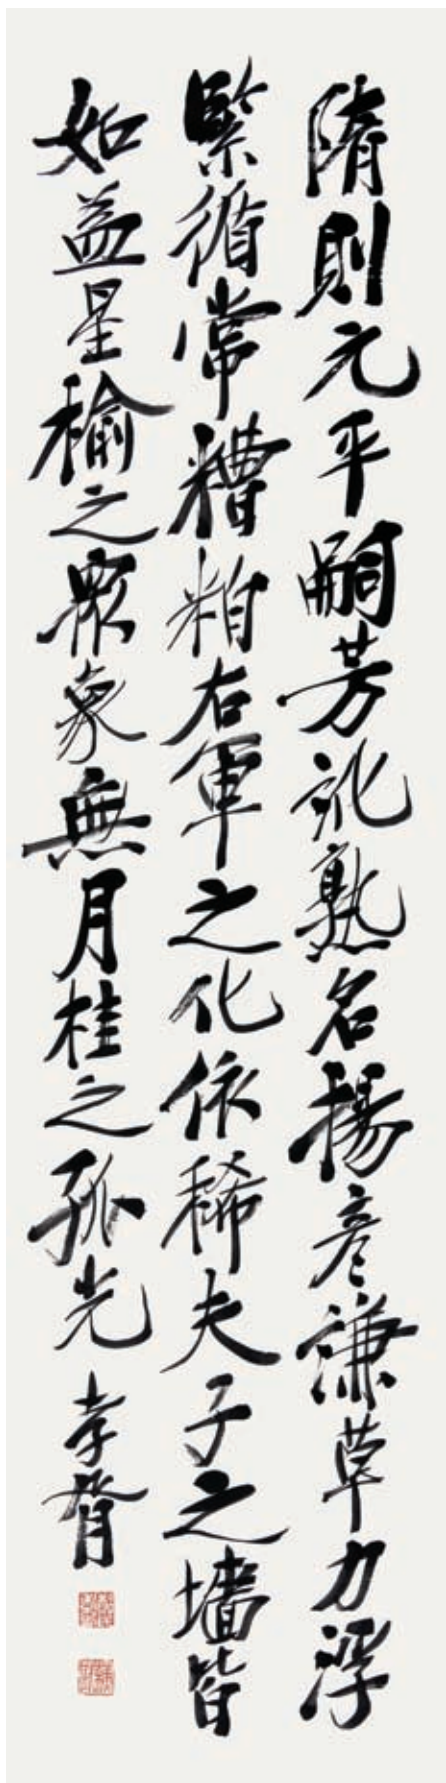 隋則元平嗣芳訛熟名揚彦謙草力浮
緊循常糟粕右軍之化依稀夫子之墻皆
如益星榆之眾象無月桂之孤光 孝胥